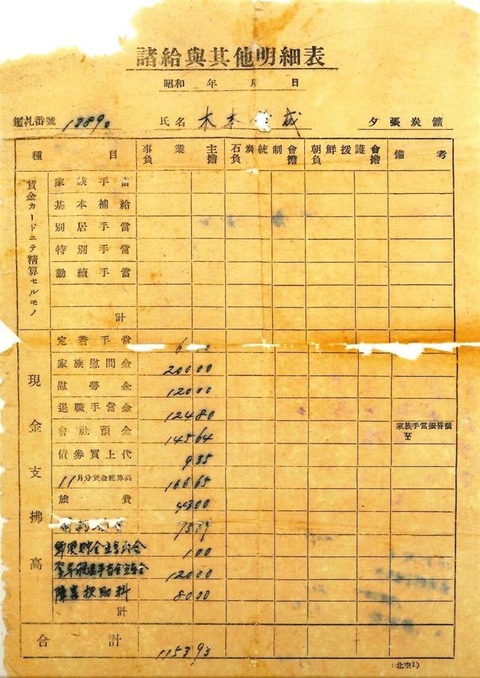 諸給與其他明細表
昭和 年 月 日
鑑札番號 1389 氏名 木本 成 夕張炭鑛
種目 事業主負擔 石炭統制會負擔 朝鮮援護會負擔 備考
賃金カードニテ精算セルモノ
家族手當
基本補給
別居手當
特別手當
勤續手當
計
現金支拂高
定着手當
家族慰問金 20000
慰勞金 12000
退職手當金 12480
會社預金 14564
家族手當振替額
至
債券買上代 935
11月分賃金精算高 16665
旅費 4800
郵便貯金 100
12000
障害扶助料 8000
計
合計 115393
(北京1)